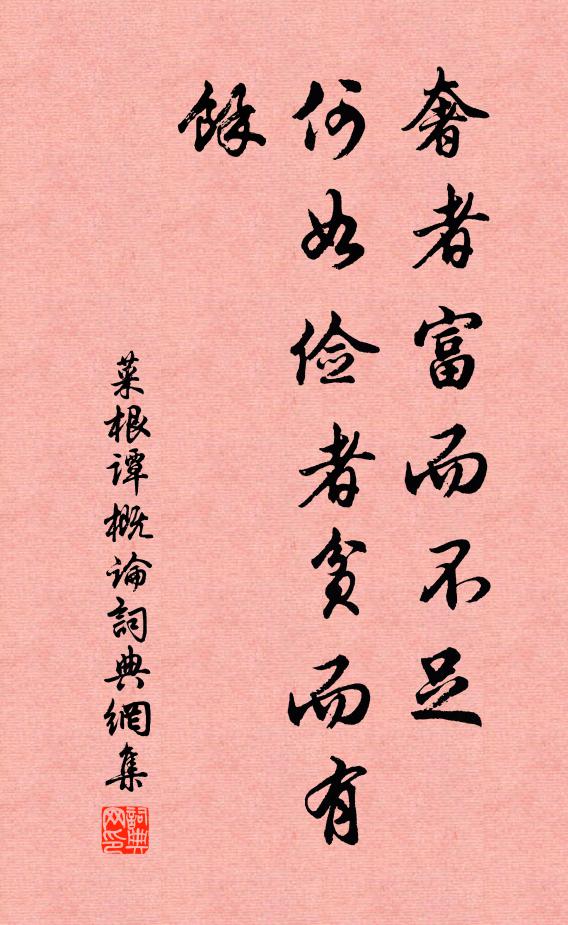 奢者富而不足
何如俭者贫而有
馀
菜根谭概论词典網集
詞典
网印